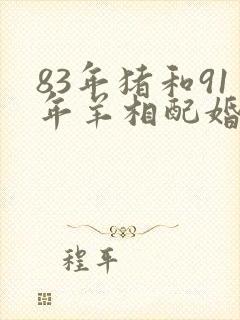 83年猪和91
年羊相配婚
程平